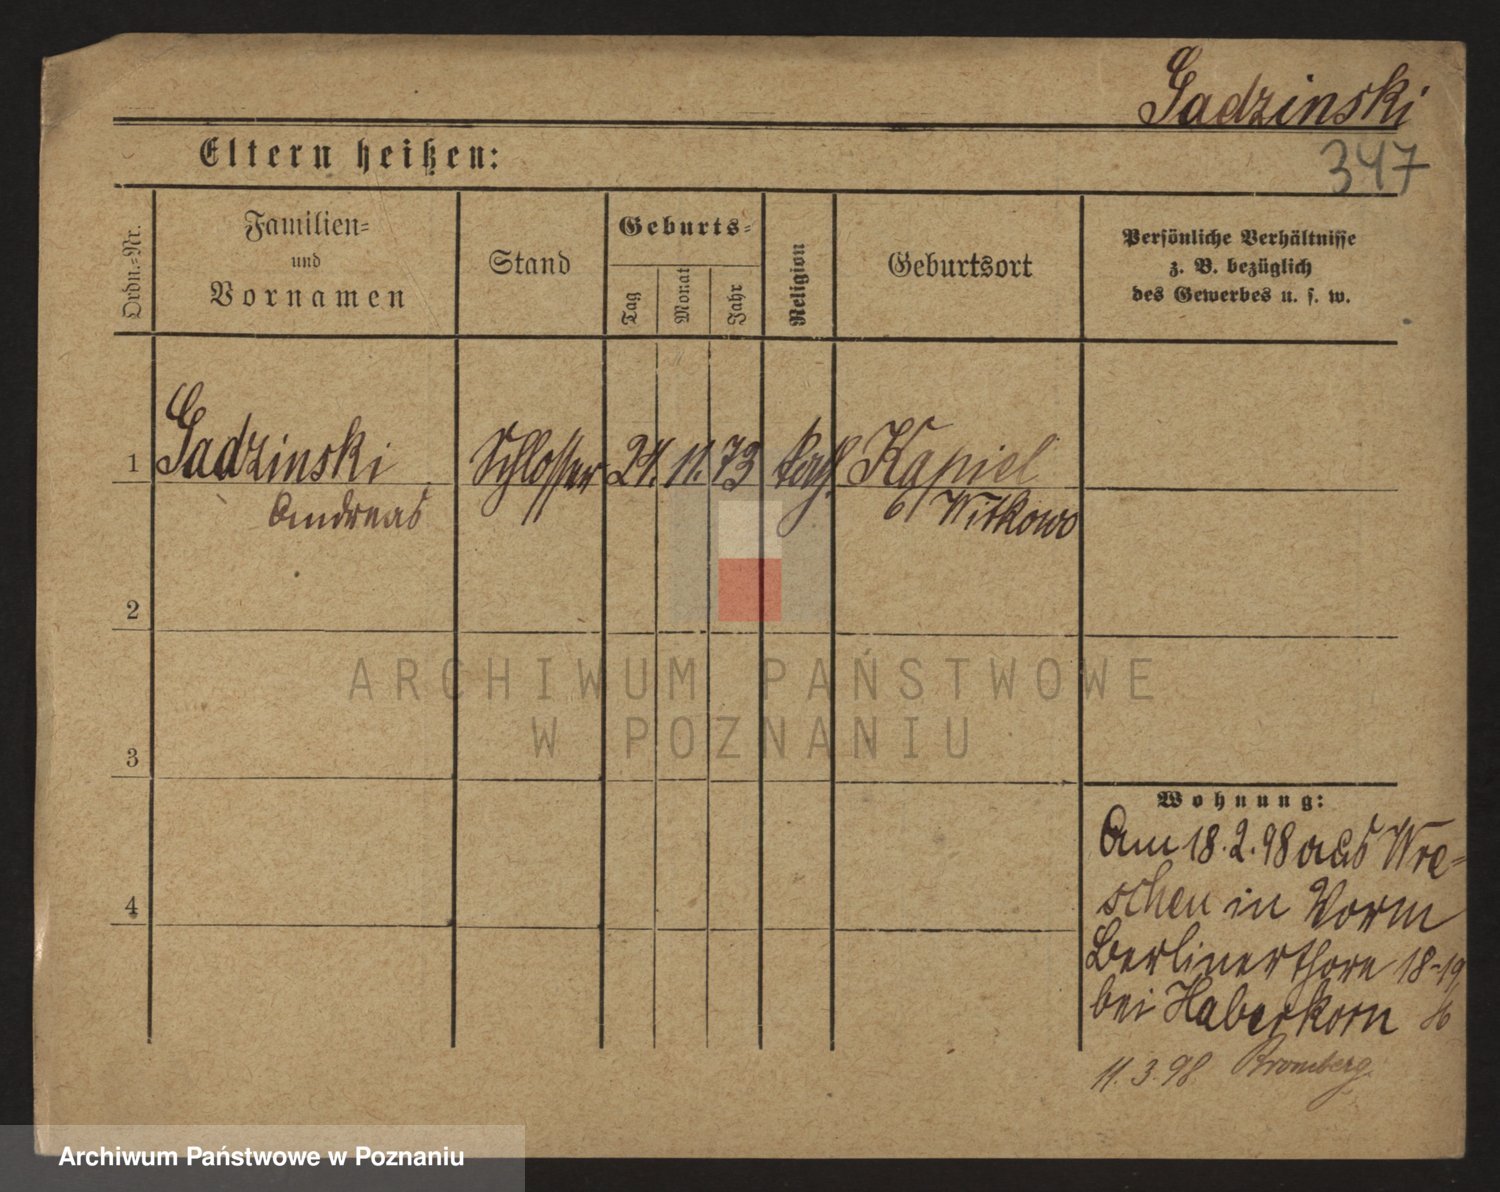 Gadzinski
Eltern heißen:
347
Ordn.-Nr.
Familien-
und
Vornamen
Stand
Geburts-
Tag
Monat
Jahr
Religion
Geburtsort
Persönliche Verhältnisse
z. B. bezüglich
des Gewerbes u. s. w.
1 Gadzinski Schlosser 21. 11. 73 kath. Kapiel
Andreas Witkowo
2
3
4
Wohnung:
Am 18.2.98 aus Wre-
schen in Vorm
Berlinerthore 18-19
bei Haberkorn
11.3.98 Bromberg.
ARCHIWUM PAŃSTWOWE
W POZNANIU
Archiwum Państwowe w Poznaniu